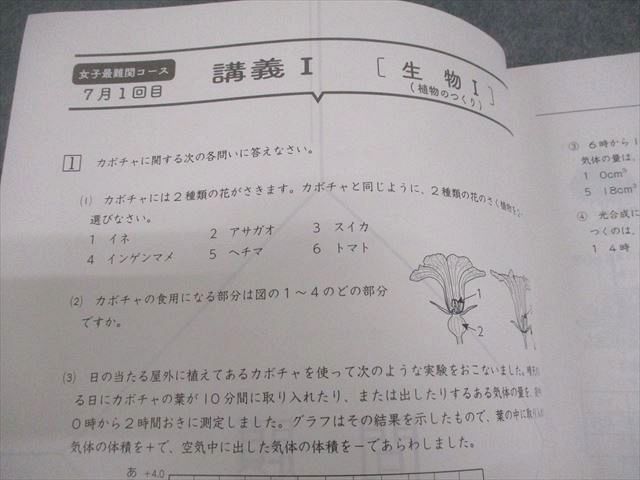 女子最難関コース
7月1回目
講義Ⅰ
［生物Ⅰ］
(植物のつくり)
1 カボチャに関する次の各問いに答えなさい。
(1) カボチャには2種類の花がさきます。カボチャと同じように、2種類の花のさく植物を2
選びなさい。
1 イネ 2 アサガオ 3 スイカ
4 インゲンマメ 5 ヘチマ 6 トマト
(2) カボチャの食用になる部分は図の1～4のどの部分
ですか。
1
2
(3) 日の当たる屋外に植えてあるカボチャを使って次のような実験をおこないました。
る日にカボチャの葉が10分間に取り入れたり、または出したりするある気体の量を、
0時から2時間おきに測定しました。グラフはその結果を示したもので、葉の中に取り
気体の体積を＋で、空気中に出した気体の体積を－であらわしました。
あ +4.0
③ 6時から1
気体の量は、
1 0cm³
5 18cm³
④ 光合成に
つくのは、
1 4時